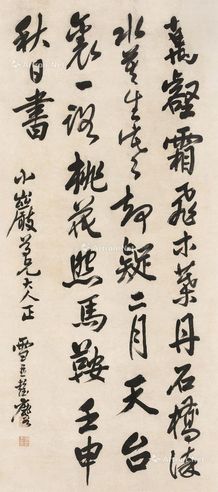 萬壑霜飛木葉丹石橋流
水莫生寒却疑二月天台
裏一路桃花照馬鞍壬申
秋日書
小巖尊兄大人正
雪